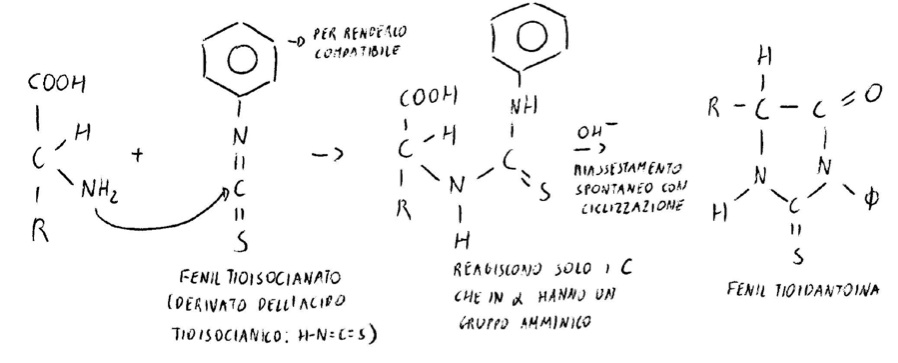 → PER RENDERLO
COMPATIBILE
COOH
H
C
NH2
R
+
N
C
S
FENIL TIOISOCIANATO
(DERIVATO DELL'ACIDO
TIOISOCIANICO: H-N=C=S)
→
COOH
H
C
R
N
H
NH
C
S
REAGISCONO SOLO I C
CHE IN α HANNO UN
GRUPPO AMMINICO
OH⁻
→
RIASSESTAMENTO
SPONTANEO CON
CICLIZZAZIONE
H
R - C - C = O
N
N
H
C
Φ
S
FENIL TIOIDANTOINA